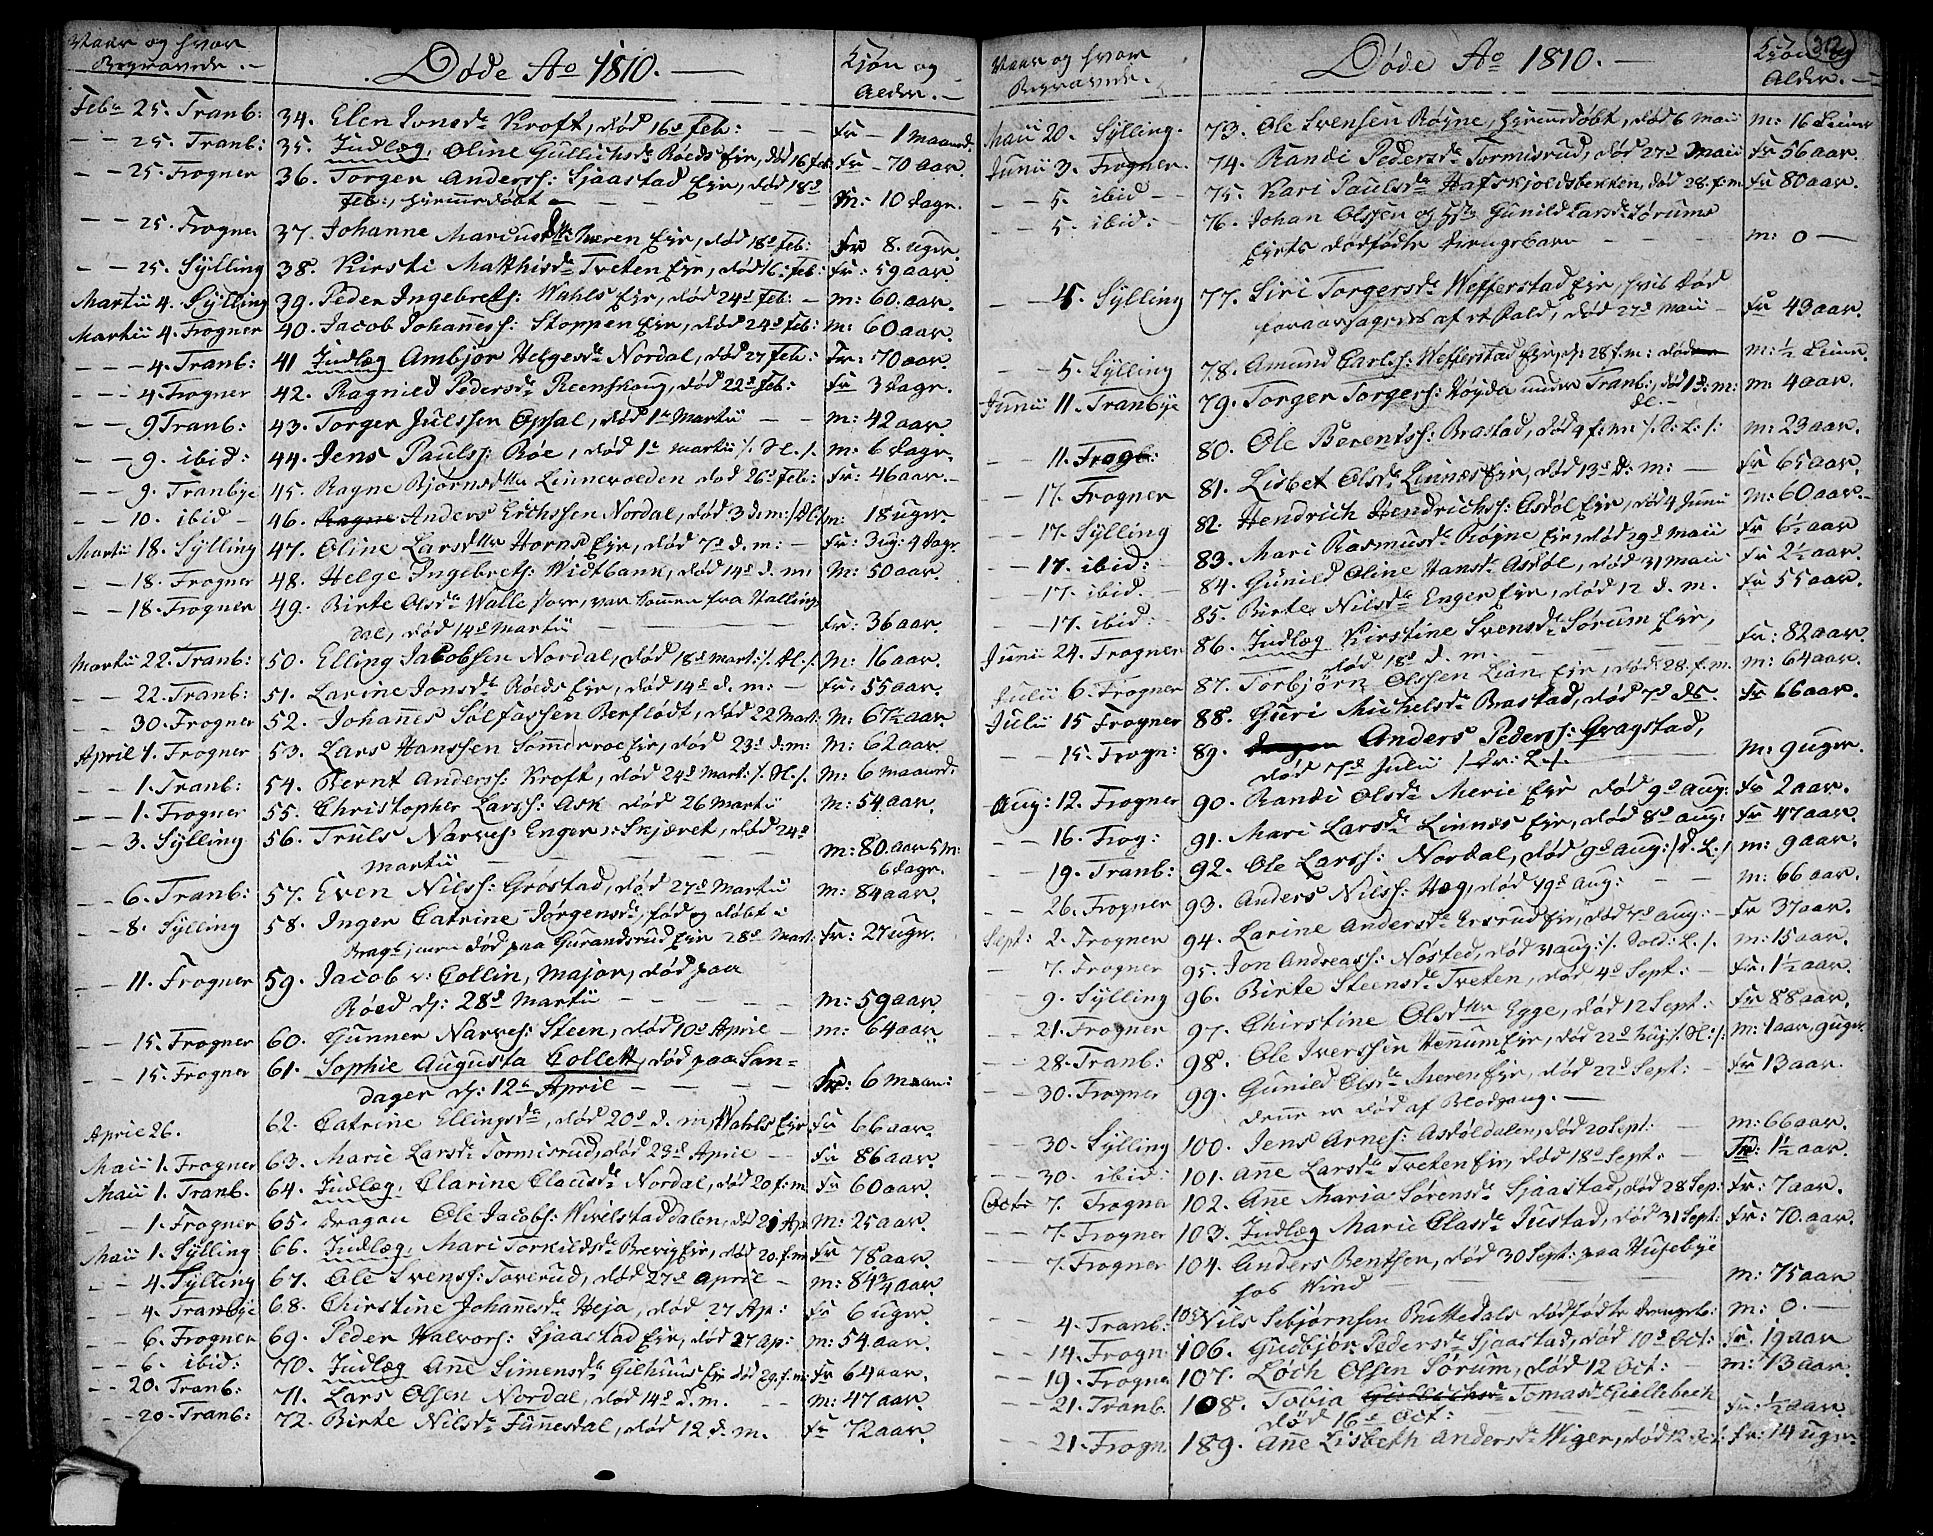 Naar og hvor
Begravede.
Døde Ao 1810.
Kiøn og
Alder.
Febr 25. Tranb: 34. Elen Jonsdr Kroft, død 16d Feb: Fr - 1 maaned.
25. Tranb: 35. Indlæg, Oline Gullichsdr Røeds Eje, død 16 feb Fr - 70 aar.
25. Frogner 36. Torger Anderss: Sjaastad Eje, død 18d
Feb:, hjemmedøbt M: 10 dage.
25. Frogner 37. Johanne Marcusdtr: Meren Eje, død 18d Feb: Fr 8. uger.
25. Sylling 38. Kirsti Matthisdr Tveten Eje, død 16. Feb: Fr: 59 aar.
Martii 4. Sylling 39. Peder Ingebrets: Wahls Eje, død 24d Feb: m: 60. aar.
Martii 4. Frogner 40. Jacob Johaness: Stoppen Eje, død 24d Feb: m: 60 aar.
4. Tranb: 41 Indlæg Ambjør Helgesdr Nordal, død 27 Feb: Fr: 70 aar.
4. Frogner 42. Ragnild Pedersdr Reenskoug, død 22d Feb: Fr 3 dage.
9. Tranb: 43. Torger Julssen Opsal, død 1te Martii m: 42 aar.
9. ibid: 44. Jens Pauls: Røe, død 1te martii /: dl. /. m: 6 dage.
9. Tranbye 45. Ragne Bjørnsdtr Linnerveden død 26d Feb: Fr: 46 aar.
10. ibid 46. Anders Erichssen Nordal, død 3 d. m: /: dl /. m: 18 uger.
Martii 18. Sylling 47. Oline Larsdtr Horns Eje, død 7d d. m: Fr: 3 ug: 4 dage.
18. Frogner 48. Helge Ingebrets: Widtbank, død 14d d. m. M: 50 aar.
18. Frogner 49. Birte Olsdr Walle, var kommen fra Halling
dal, død 14d Martii Fr: 36 aar.
Martii 22. Tranb: 50. Elling Jacobsen Nordal, død 18d mart: /. dl. /. M: 16 aar.
22. Tranb: 51. Larine Jonsdr Røeds Eje, død 14d d. m: Fr: 55 aar.
30. Frogner 52. Johanes Solfassen Berflødt, død 22 Mart: M: 67½ aar.
April 1. Frogner 53. Lars Hanssen Sommerroe Eje, død 23d d. m: M: 62 aar.
1. Tranb: 54. Bernt Anderss: Kroft, død 24d Mart: /. dl. /. M: 6 maaned.
1. Frogner 55. Christopher Larss: Ask død 26 Martii M: 54 aar.
3. Sylling 56. Truls Narves: Enger i Skjæret, død 24d
martii m: 80. aar 5 m:
6 dage.
6. Tranb: 57. Even Nilss: Grøstad, død 27d Martii m: 84 aar.
8. Sylling 58. Inger Catrine Jørgensdr, fød og døbt i
Bragenæs, men død paa Gurandsrud Eje 28d Mart: Fr: 27 uger.
11. Frogner 59. Jacob v: Collin, major, død paa
Røed d: 28d Martii m: 59 aar.
15. Frogner 60. Gunner Narves: Steen, død 10d Aprie m: 64 aar.
15. Frogner 61. Sophie Augusta Collett, død paa San-
dager d: 12te April Fr: 6 maan:
Aprie 26. 62. Catrine Ellingsdr, død 20d d. m. Wahls Eje Fr 66 aar.
Maii 1. Frogner 63. Marie Larsdr Tormisrud, død 23d Aprie Fr 86 aar.
Maii 1. Tranb. 64. Indlæg. Clarine Clausdr Nordal, død 20. f. m Fr 60 aar.
1. Frogner 65. dragon Ole Jacobs: Wivelstaddalen, død 21 Ap M: 25 aar.
Maii 1. Sylling 66. Indlæg. Mari Torkildsdr Brevig Eje, død 20. f. m Fr 78 aar.
4. Sylling 67. Ole Svenss: Toverud, død 27d aprie m: 84¾ aar.
4. Tranbye 68. Chirstine Johanesdr Heja, død 27 Ap: Fr 6 uger.
6. Frogner 69. Peder Halvors: Sjaastad Eje, død 27 ap: m: 54 aar.
6. ibid: 70. Indlæg Ane Simensdr Gilhuus Eje død 29. f. m: Fr 64 aar.
20. Tranb: 71. Lars Olsen Nordal, død 14d d. m. m: 47 aar.
20. Tranb: 72. Birte Nilsdr Funesdal, død 12 d. m. Fr 72 aar.
Naar og hvor
Begravede.
Døde Ao 1810.
Kiøn og
Alder.
312
Maii 20. Sylling. 73. Ole Svensen Røyne, hjemmedøbt, død 6 maii m: 16 Timer
Junii 3. Frogner. 74. Randi Pedersdr Tormisrud, død 27d Maii Fr 56 aar.
5. ibid 75. Kari Paulsdr Hafskjoldsbekken, død 28. f: m. Fr 80 aar.
5. ibid 76. Johan Olssen og Gunild Larsdr Sørums
Ejets dødfødte drengebarn m: 0
4. Sylling 77. Siri Torgersdr Wefferstad Eje, hvis død
foraarsagedes af et Fald, død 27d Maii Fr 43 aar.
5. Sylling 78. Amund Carls: Wefferstad Eje, d: 28 f. m: m: ½ Time.
Junii 11. Tranbye 79. Torger Torgers: Høyda under Tranb:, død 1 d: m: m: 4 aar.
dl.
11. Frog: 80. Ole Berentss: Brastad, død 4 f: m: /. d: L: /: m: 23 aar.
17. Frogner 81. Lisbet Olsdr Linnæs Eje, død 13d d: m: Fr 65 aar.
17. Sylling 82. Hendrich Hendrichs: Asdøl Eje, død 4 Junii m: 60 aar.
17. ibid: 83. Mari Rasmusdr Røyne Eje, død 29d Maii Fr 6½ aar
17. ibid. 84. Gunild Oline Hansdr Asdøl, død 31 Maii Fr 2½ aar.
17. ibid: 85. Birte Nilsdr Enger Eje, død 12 d. m. Fr 55 aar.
Junii 24. Frogner 86. Indlæg Kirstine Svensdr Sørum Eje,
død 18d d. m. Fr: 82 aar.
Julii 6. Frogner 87. Torbjørn Olssen Lian Eje, død 28. f. m. m: 64 aar.
Julii 15 Frogner 88. Guri Michelsdr Brastad, død 7d ds. Fr 66 aar.
15. Frogn: 89. Anders Peders: Gragstad,
død 7d Julii /. dr: L /. M: 9 uger.
Aug: 12. Frogner 90. Randi Olsdr Merie Eje død 9d Aug: Fr 2 aar.
16. Frog: 91. Mari Larsdr Linnæs Eje, død 8d aug: Fr 47 aar.
19. Tranb: 92. Ole Larss: Nordal, død 9d Aug: /. d. L: /. m: 9 aar.
26. Frogner 93. Anders Nilss: Hæg, død 19d Aug: m: 66 aar.
Sept: 2. Frogner 94. Larine Andersdr Ersrud Eje, død 7d aug: Fr 37 aar.
7. Frogner 95. Jon Andreass: Nøsted, død 31 aug: /. Sold: L: /. m: 15 aar.
9. Sylling 96. Birte Steensdr Tveten, død 4d Sept: Fr: 1½ aar.
21. Frogner 97. Chirstine Olsdtter Egge, død 12 Sept: Fr 88 aar.
28. Tranb: 98. Ole Iverssen Henum Eje, død 22d Aug: /. dl: /: m: 1 aar, 9 uger.
30. Frogner 99. Gunild Olsdr Meren Eje, død 22d Sept: Fr 13 aar.
denne er død af Blodgang.
30. Sylling 100. Jens Arnes: Asdøldalen, død 20 Sept: m: 66 aar.
30. ibid: 101. Ane Larsdr Tveten Eje, død 18d Sept: Fr 1½ aar.
Octr 7. Frogner 102. Ane Maria Sørensdr Sjaastad, død 28 Sep: Fr: 7 aar.
7. Frogner 103. Indlæg Marie Olasdr Justad, død 31 Sept: Fr: 70. aar.
7. Frogner 104. Anders Bentsen, død 30 Sept: paa Husebye
hos Wind m: 75 aar
4. Tranb: 105 Nils Sebjørnsen Bruttedals dødfødte drengeb: m: 0.
14. Frogn. 106. Gudbjør Pedersdr Sjaastad, død 10d Oct: Fr. 19 aar
19. Frogne 107. Loch Olsen Sørum, død 12 Oct: m: 13 aar.
21. Tranb. 108. Tobia Tomasdr Gjellebech
død 16d Oct: Fr: ½ aar.
21. Frogn. 189. Ane Lisbeth Andersdr Wiger, død 12 Oct: Fr: 14 uger.